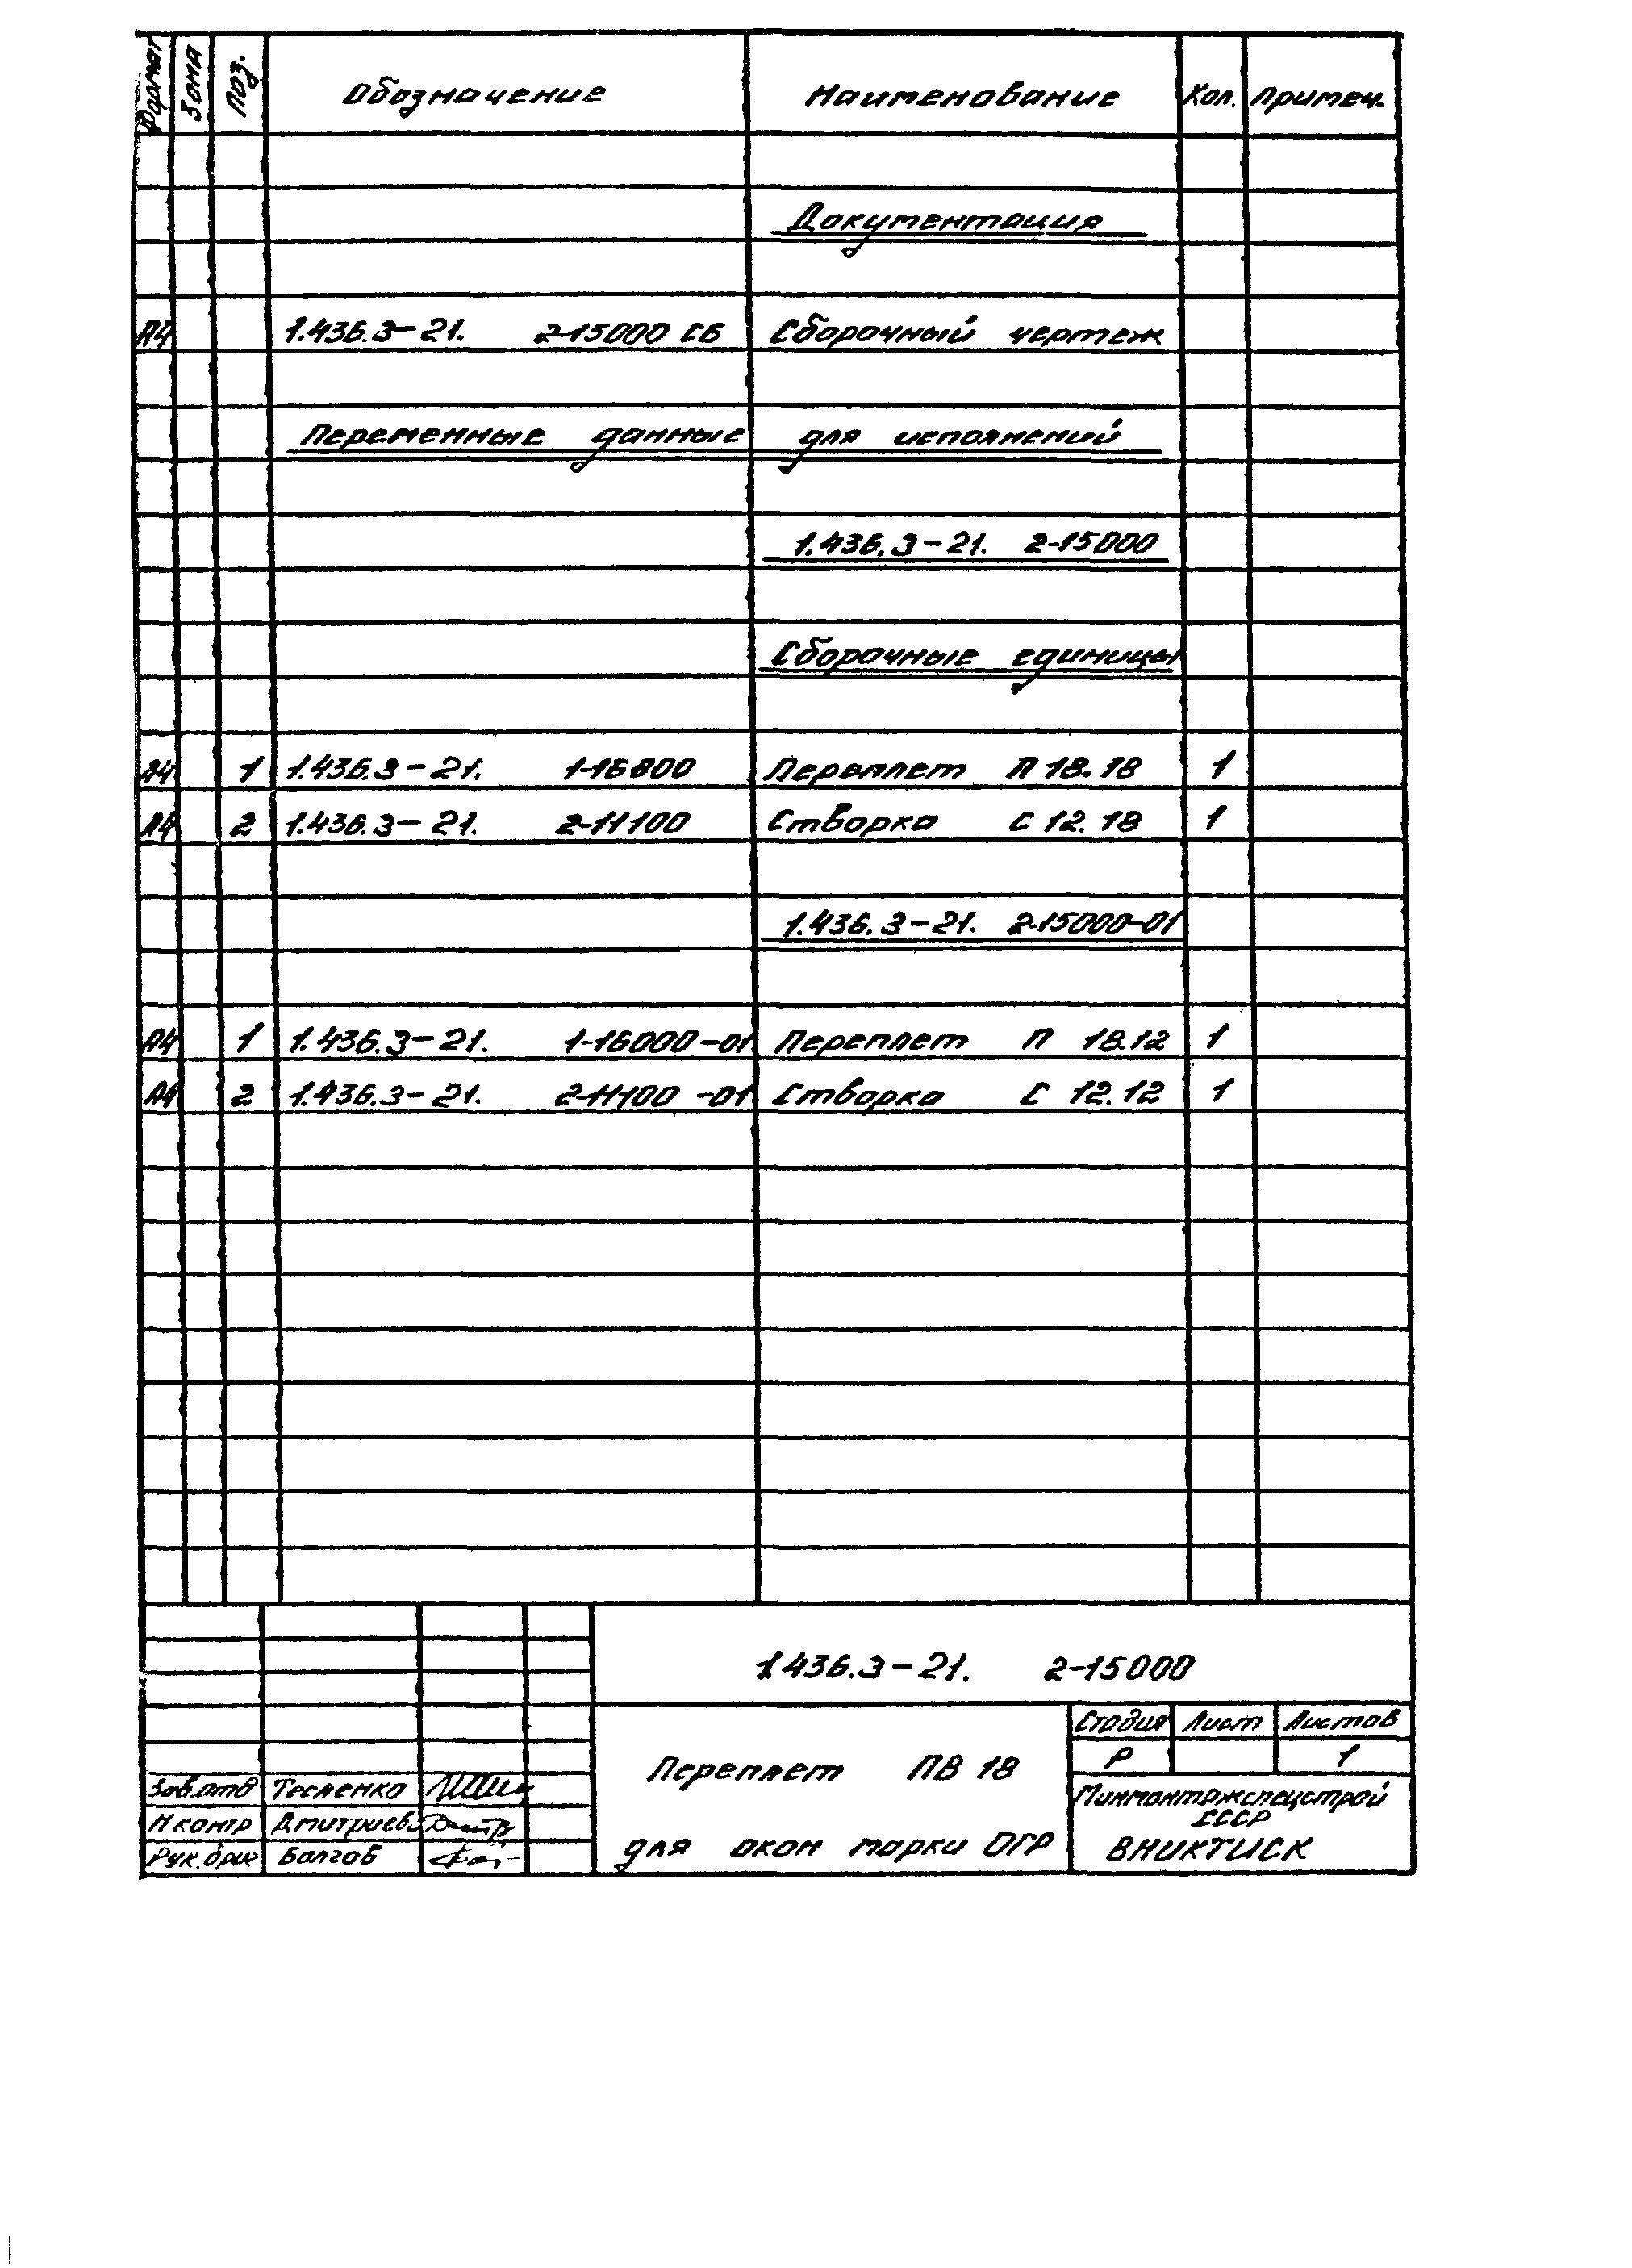 Формат Зона Поз. Обозначение Наименование Кол. Примеч.
Документация
А4 1.436.3-21. 2-15000 СБ Сборочный чертеж
Переменные данные для исполнений
1.436.3-21. 2-15000
Сборочные единицы
А4 1 1.436.3-21. 1-16000 Переплет П 18.18 1
А4 2 1.436.3-21. 2-11100 Створка С 12.18 1
1.436.3-21. 2-15000-01
А4 1 1.436.3-21. 1-16000-01 Переплет П 18.12 1
А4 2 1.436.3-21. 2-11100-01 Створка С 12.12 1
1.436.3-21. 2-15000
Стадия Лист Листов
Переплет ПВ 18
для окон марки ОГР
Р 1
Минмонтажспецстрой
СССР
ВНИКТИСК
Зав.отд Тесленко
Н контр Дмитриев
Рук.бриг